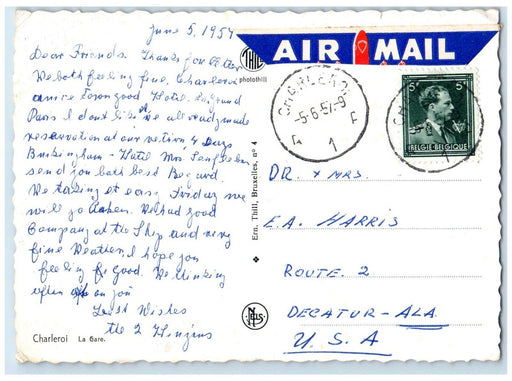 June 5, 1957
Dear Friends. Thanks for
We both feeling fine. Charleroi
a nice town good Hotel. Le grand
Paris I dont like it. We all ready made
reservation at our return, 4 days
Buckingham - Hotel Mrs
send you both best Regard.
We taking at easy. Friday we
will go Aachen. We had good
Company at the Ship and very
fine Weather. I hope you
feeling good. We thinking
often on you
Best Wishes
the 2
Charleroi La Gare.
THILL
photothill
Ern. Thill, Bruxelles, nº 4
NELS
AIR MAIL
CHARLEROI
-5-6-57-9
1
5F 5F
BELGIE-BELGIQUE
DR. & MRS.
E.A. HARRIS
ROUTE. 2
DECATUR - ALA.
U.S.A